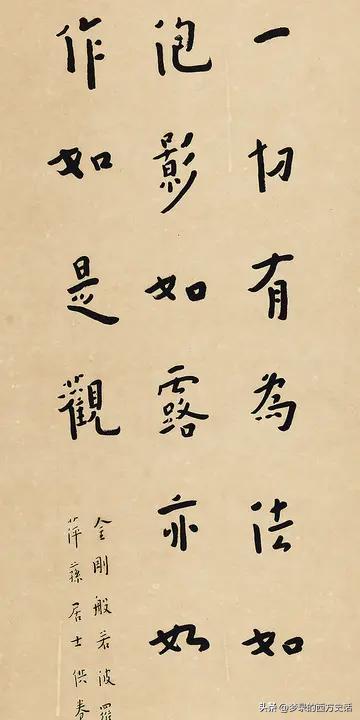 一切有為法如
泡影如露亦如
作如是觀
金剛般若波羅
萍蓀居士供
头条 @梦录的西方史话